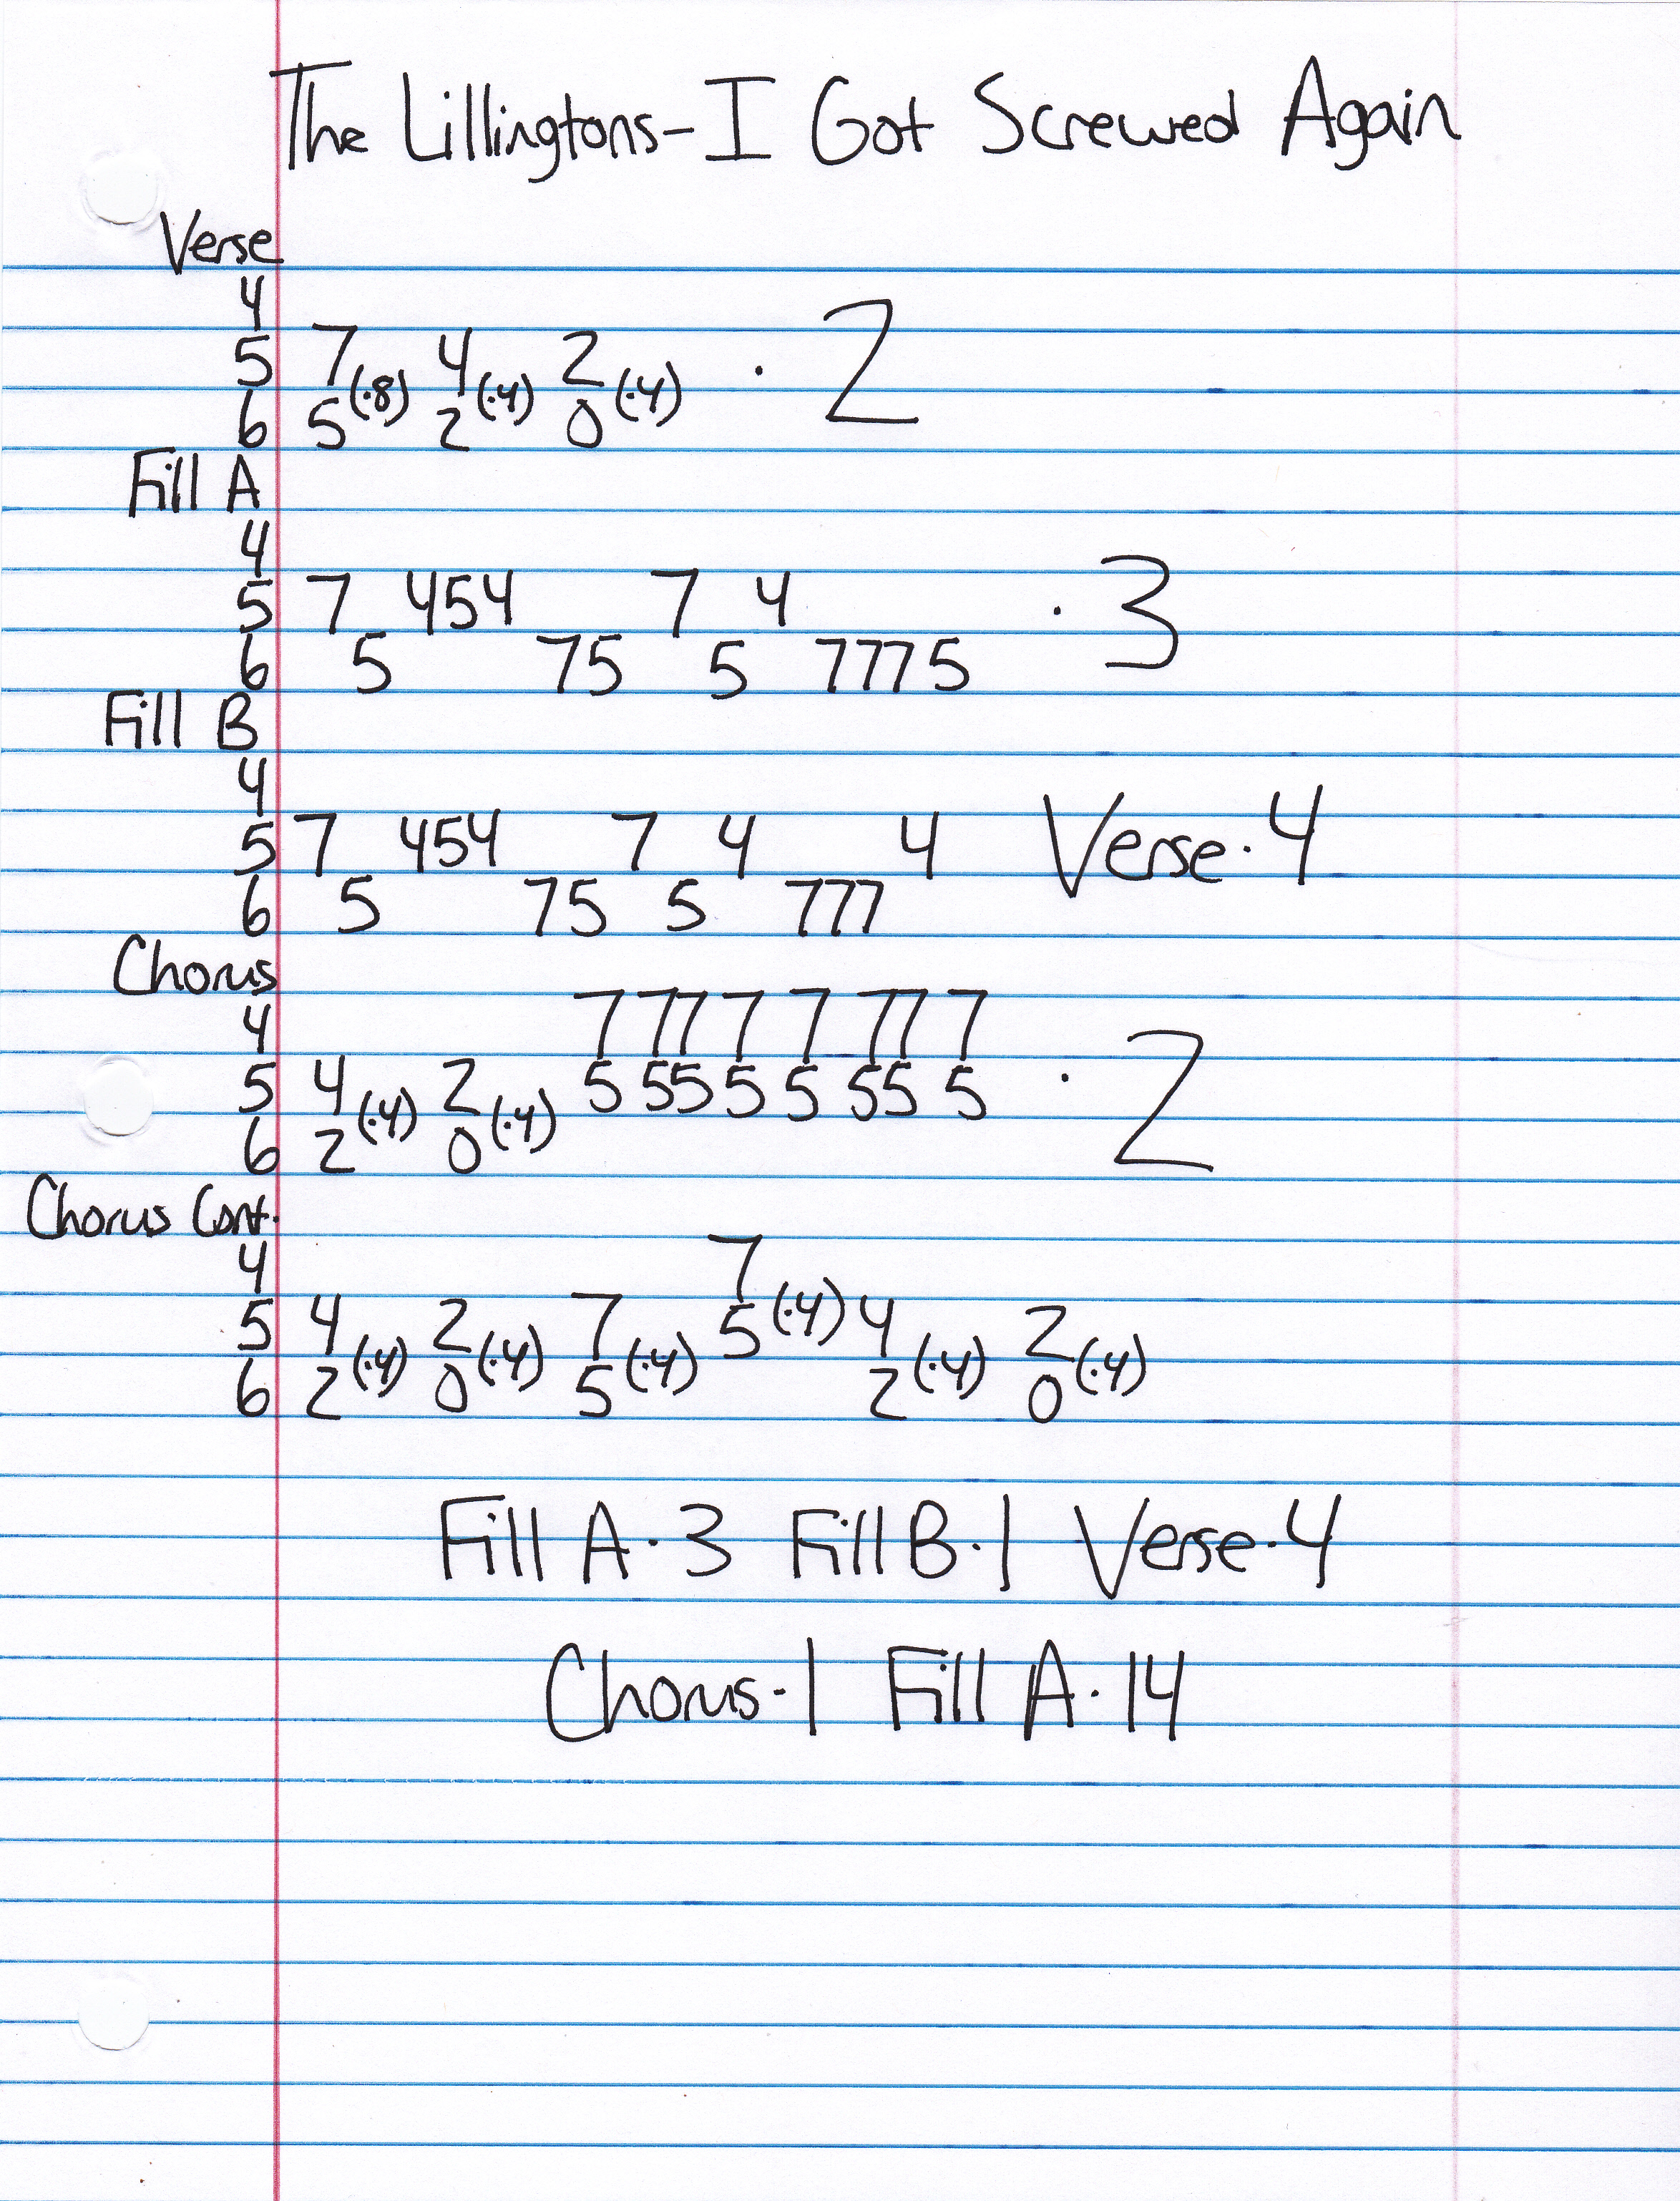 The Lillingtons-I Got Screwed Again
Verse
4
5 7 4 2 · 2
(·8) (·4) (·4)
6 5 2 0
Fill A
4
5 7 454 7 4 · 3
6 5 75 5 7775
Fill B
4
5 7 454 7 4 4 Verse·4
6 5 75 5 777
Chorus
4 7 77 7 7 77 7
5 4 2 5 55 5 5 55 5 · 2
(·4) (·4)
6 2 0
Chorus Cont.
4 7
5 4 2 7 5 (·4) 4 2
(·4) (·4) (·4) (·4) (·4)
6 2 0 5 2 0
Fill A·3 Fill B·1 Verse·4
Chorus·1 Fill A·14